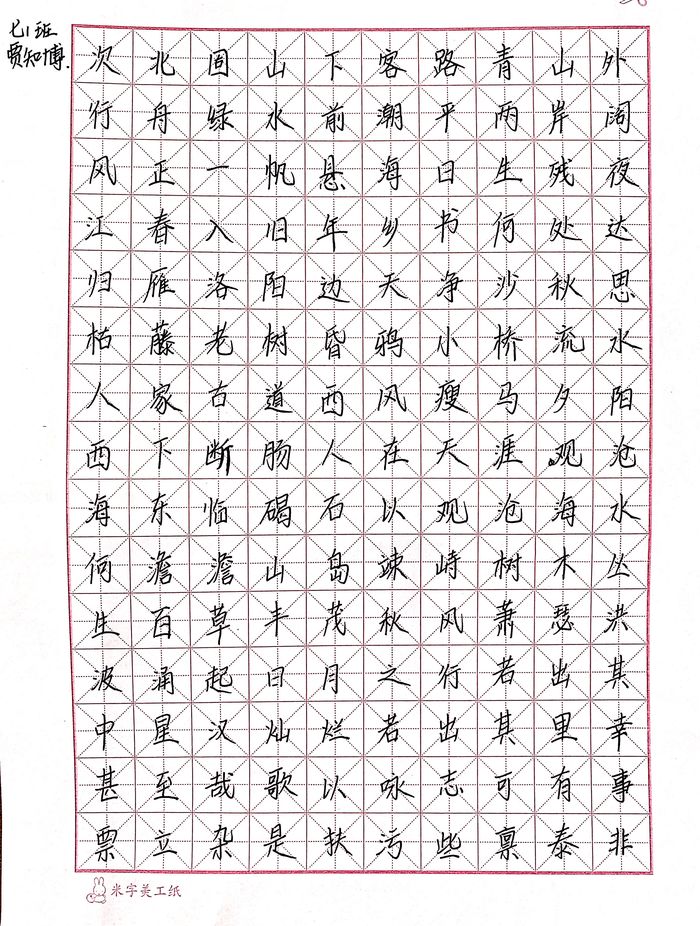 七1班
贾知博.
次北固山下客路青山外
行舟绿水前潮平两岸阔
风正一帆悬海日生残夜
江春入旧年乡书何处达
归雁洛阳边天净沙秋思
枯藤老树昏鸦小桥流水
人家古道西风瘦马夕阳
西下断肠人在天涯观沧
海东临碣石以观沧海水
何澹澹山岛竦峙树木丛
生百草丰茂秋风萧瑟洪
波涌起日月之行若出其
中星汉灿烂若出其里幸
甚至哉歌以咏志可有事
票立杂是扶污些禀泰非
米字美工纸